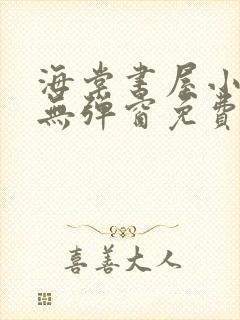 海棠書屋小
無彈窗免費
喜善大人